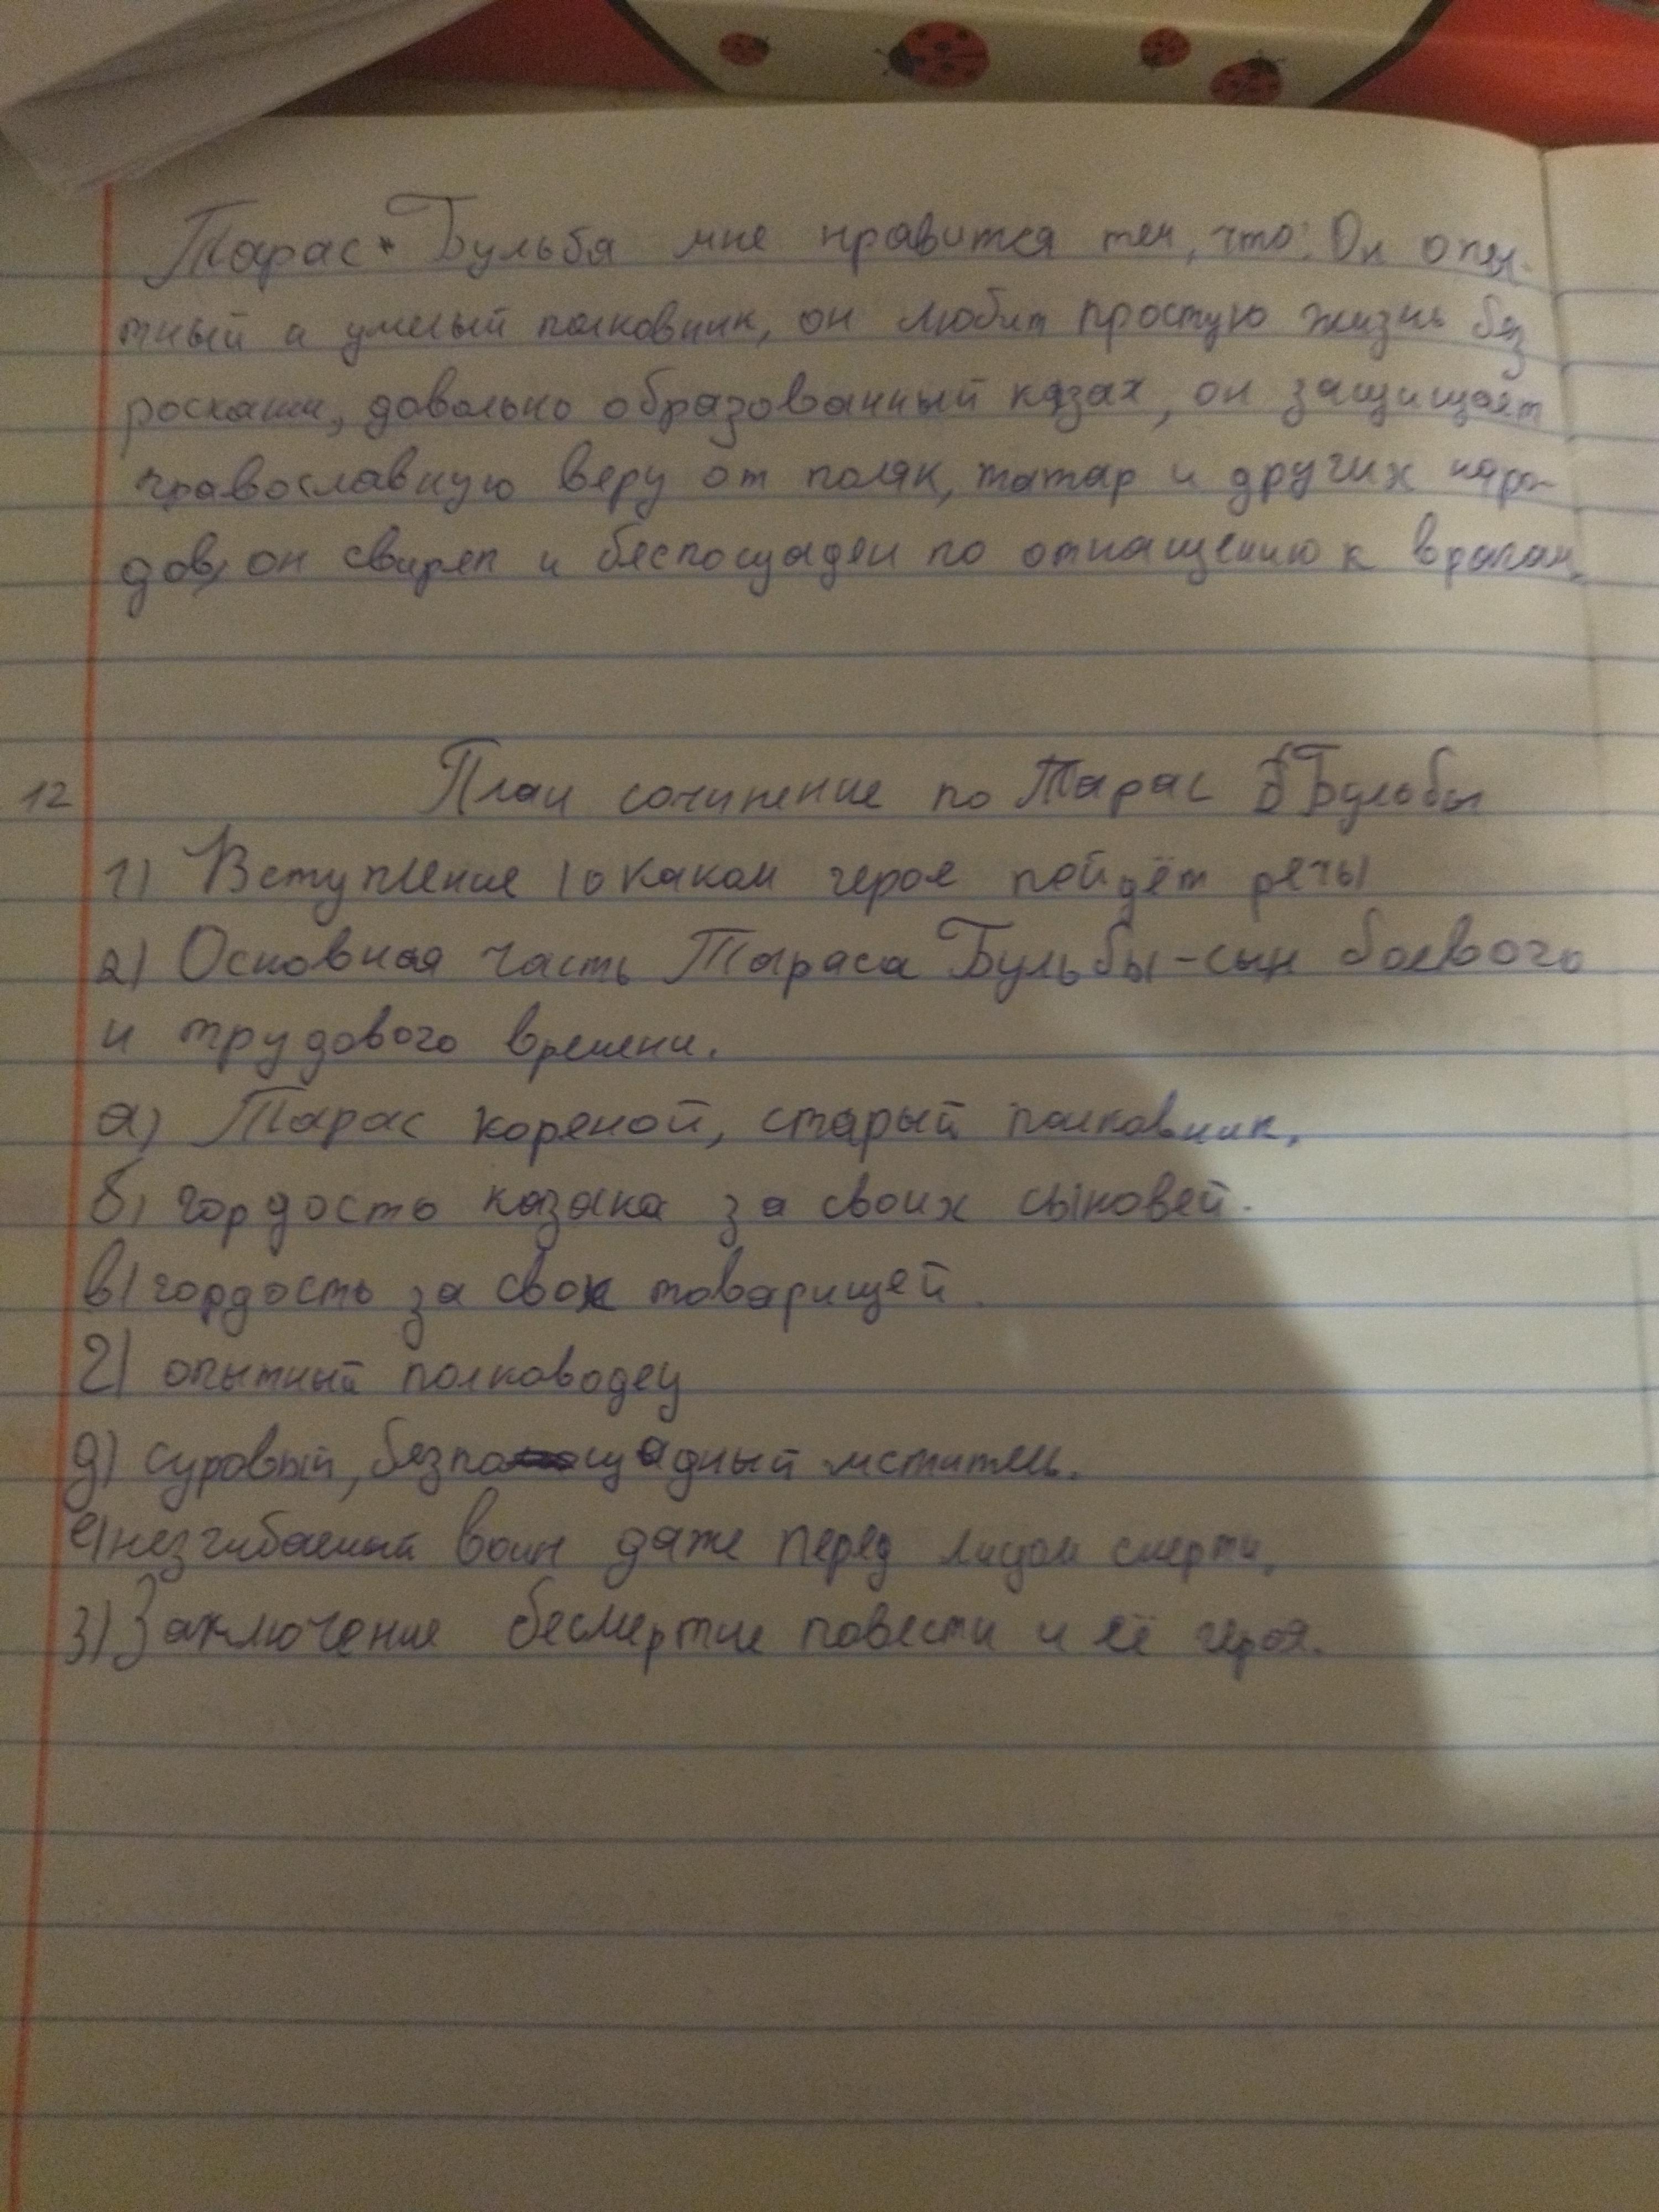 Тарас Бульба мне нравится тем, что: Он опы-
тный и умелый полковник, он любит простую жизнь без
роскоши, довольно образованный казах, он защищает
православную веру от поляк, татар и других наро-
дов, он свиреп и беспощаден по отнащению к врагам.
12 План сочинение по Тарас Бульбы
1) Вступление (о каком герое пойдёт речь)
2) Основная часть Тараса Бульбы-сын боевого
и трудового времени.
а) Тарас кореной, старый полковник.
б) гордость казака за своих сыновей.
в) гордость за свох товарищей.
г) опытный полководец
д) суровый, безпощадный мститель.
е) незгибаемый воин даже перед лицом смерти.
3) Заключение бесмертие повести и её героя.